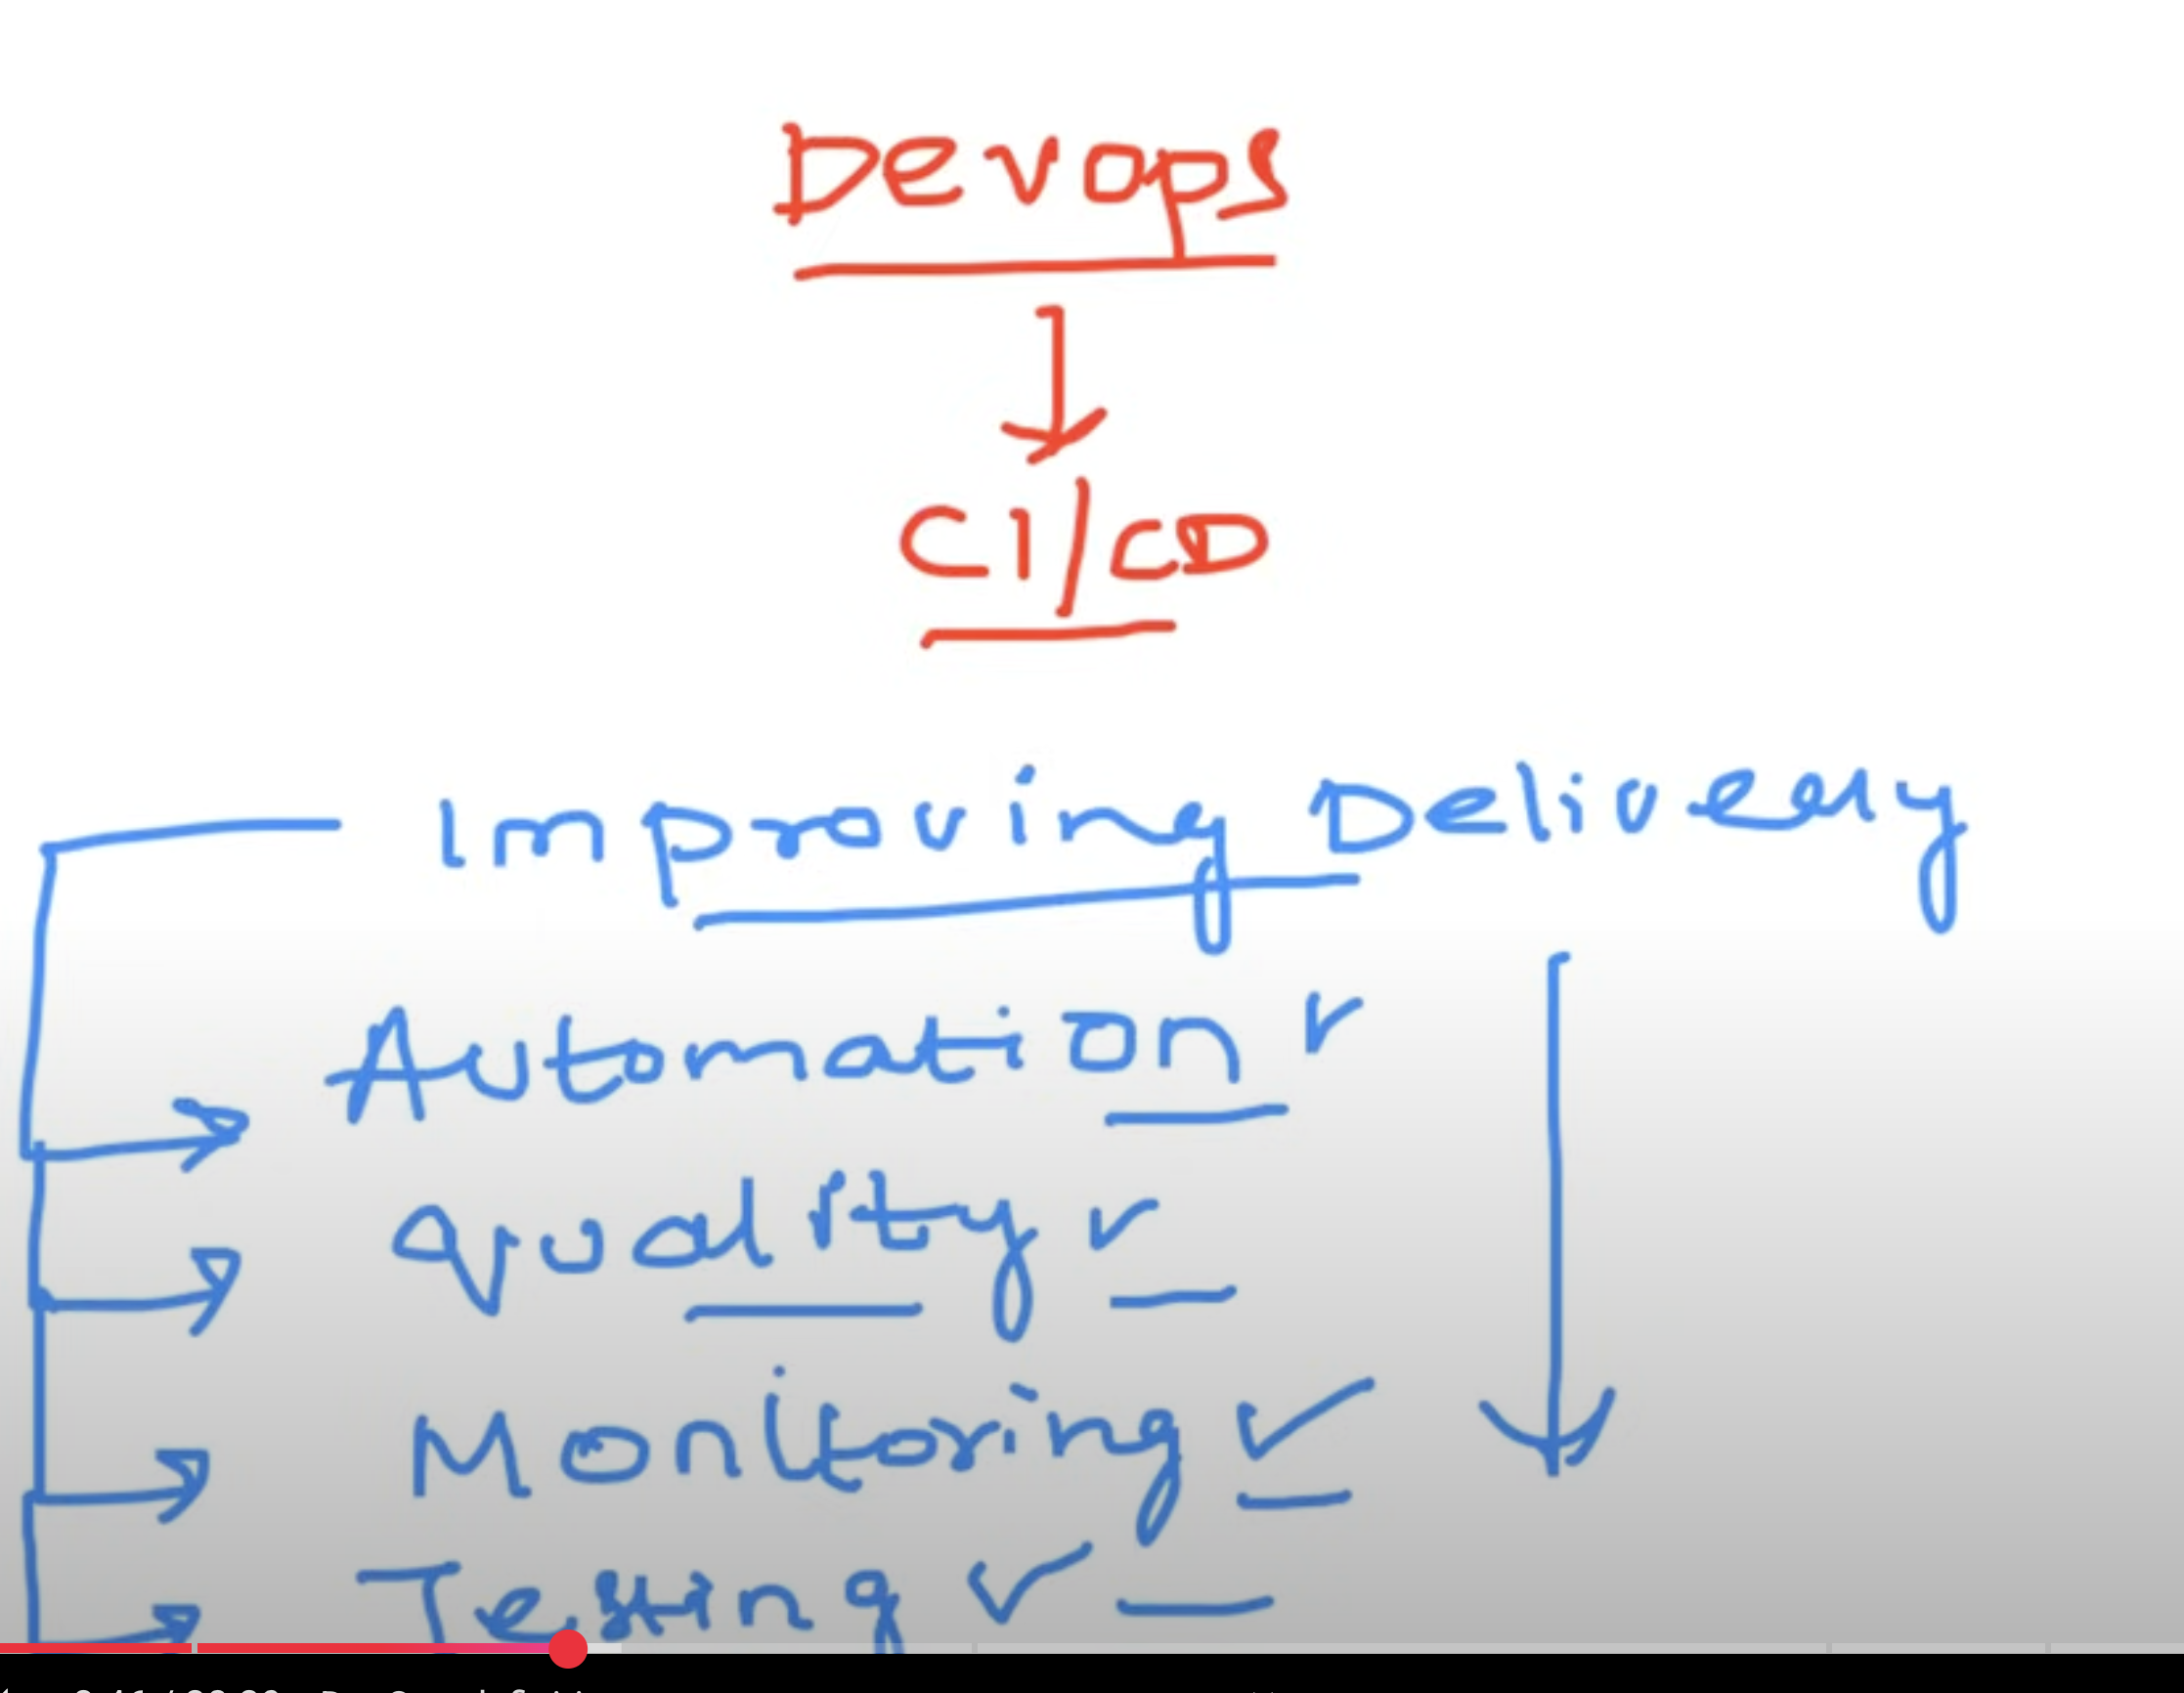 Devops
CI/CD
Improving Delivery
Automation
Quality
Monitoring
Testing